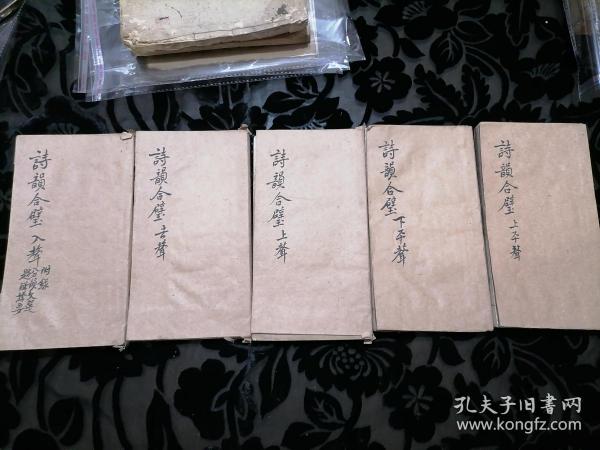 詩韻合璧 上平聲
詩韻合璧 下平聲
詩韻合璧 上聲
詩韻合璧 去聲
詩韻合璧 入聲
附錄
孔夫子旧书网
www.kongfz.com